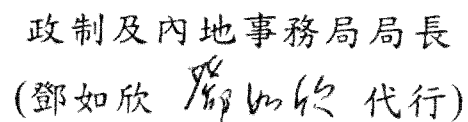 政制及內地事務局局長
(鄧如欣 鄧如欣 代行)